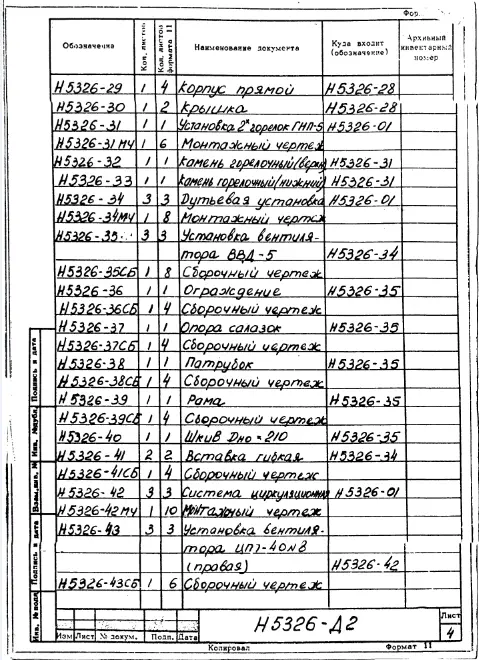 Фор.
Обозначение Кол. листов Кол. листов формата 11 Наименование документа Куда входит (обозначение) Архивный инвентарный номер
Н5326-29 1 4 Корпус прямой Н5326-28
Н5326-30 1 2 Крышка Н5326-28
Н5326-31 1 1 Установка 2х горелок ГНП-5 Н5326-01
Н5326-31МЧ 1 6 Монтажный чертеж
Н5326-32 1 1 Камень горелочный(верхн) Н5326-31
Н5326-33 1 1 Камень горелочный(нижний) Н5326-31
Н5326-34 3 3 Дутьевая установка Н5326-01
Н5326-34МЧ 1 8 Монтажный чертеж
Н5326-35 3 3 Установка вентиля-
тора ВВД-5 Н5326-34
Н5326-35СБ 1 8 Сборочный чертеж
Н5326-36 1 1 Ограждение Н5326-35
Н5326-36СБ 1 4 Сборочный чертеж
Н5326-37 1 1 Опора салазок Н5326-35
Н5326-37СБ 1 4 Сборочный чертеж
Н5326-38 1 1 Патрубок Н5326-35
Н5326-38СБ 1 4 Сборочный чертеж
Н5326-39 1 1 Рама Н5326-35
Н5326-39СБ 1 4 Сборочный чертеж
Н5326-40 1 1 Шкив Dно=210 Н5326-35
Н5326-41 2 2 Вставка гибкая Н5326-34
Н5326-41СБ 1 4 Сборочный чертеж
Н5326-42 3 3 Система циркуляционная Н5326-01
Н5326-42МЧ 1 10 Монтажный чертеж
Н5326-43 3 3 Установка вентиля-
тора ЦП7-40№8
(правая) Н5326-42
Н5326-43СБ 1 6 Сборочный чертеж
Подпись и дата
Инв. №дубл.
Взам.инв. №
Подпись и дата
Инв. № подл.
Изм Лист № докум. Подп. Дата
Н5326-Д2
Лист
4
Копировал Формат 11